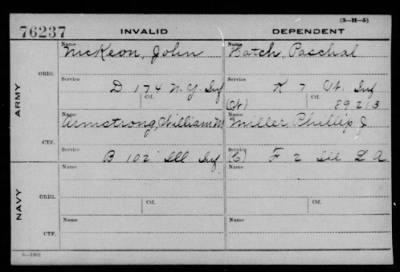 (3—H—5)
76237 INVALID DEPENDENT
Name Name
McKeon, John Hatch, Paschal
ORIG.
Service Service
D 174 N.Y. Inf K 7 Vt. Inf
Ctf. Ctf.
ARMY
Name Name
Armstrong, William M Miller Phillip J
CTF.
Service Service
B 102 Ill Inf (C) F 2 Ill L A
Name Name
ORIG.
Service Service
Ctf. Ctf.
NAVY
Name Name
CTF.
Service Service